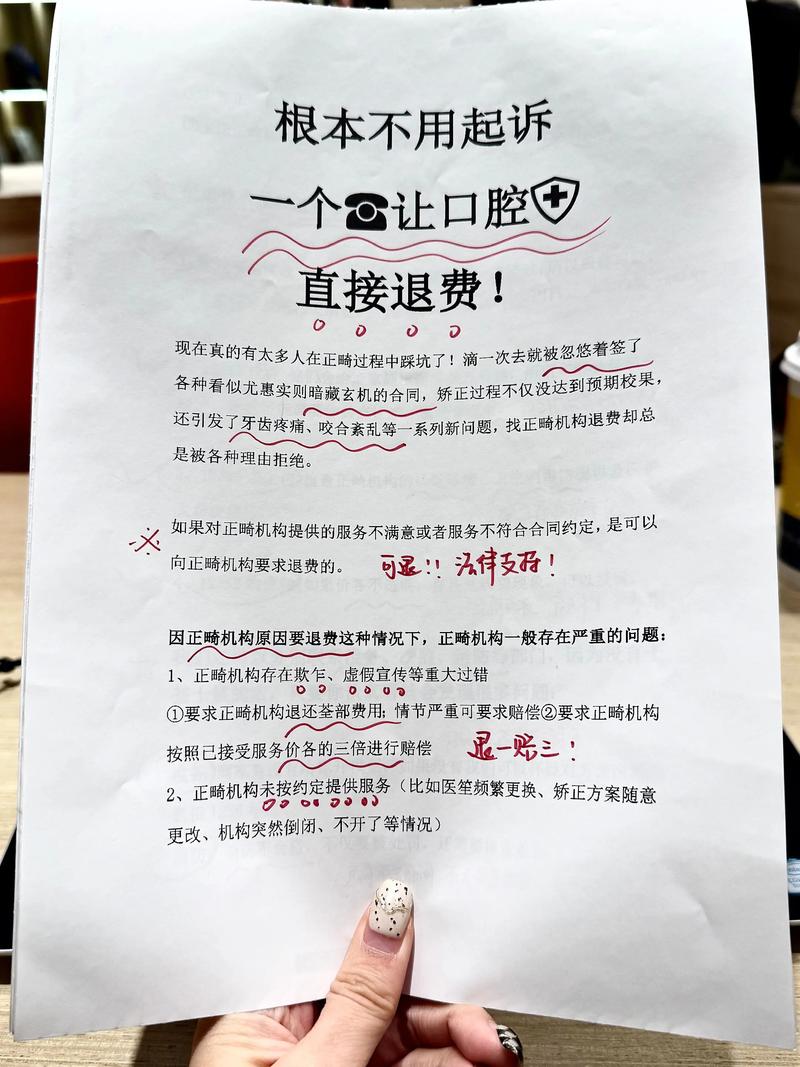 根本不用起诉
一个☎让口腔
直接退费！
现在真的有太多人在正畸过程中踩坑了！滴一次去就被忽悠着签了
各种看似尤惠实则暗藏玄机的合同，矫正过程不仅没达到预期校果，
还引发了牙齿疼痛、咬合紊乱等一系列新问题，找正畸机构退费却总
是被各种理由拒绝。
如果对正畸机构提供的服务不满意或者服务不符合合同约定，是可以
向正畸机构要求退费的。 可退！！ 法律支持！
因正畸机构原因要退费这种情况下，正畸机构一般存在严重的问题：
1、正畸机构存在欺乍、虚假宣传等重大过错
①要求正畸机构退还荃部费用；情节严重可要求赔偿②要求正畸机构
按照已接受服务价各的三倍进行赔偿 退一赔三！
2、正畸机构未按约定提供服务（比如医笙频繁更换、矫正方案随意
更改、机构突然倒闭、不开了等情况）